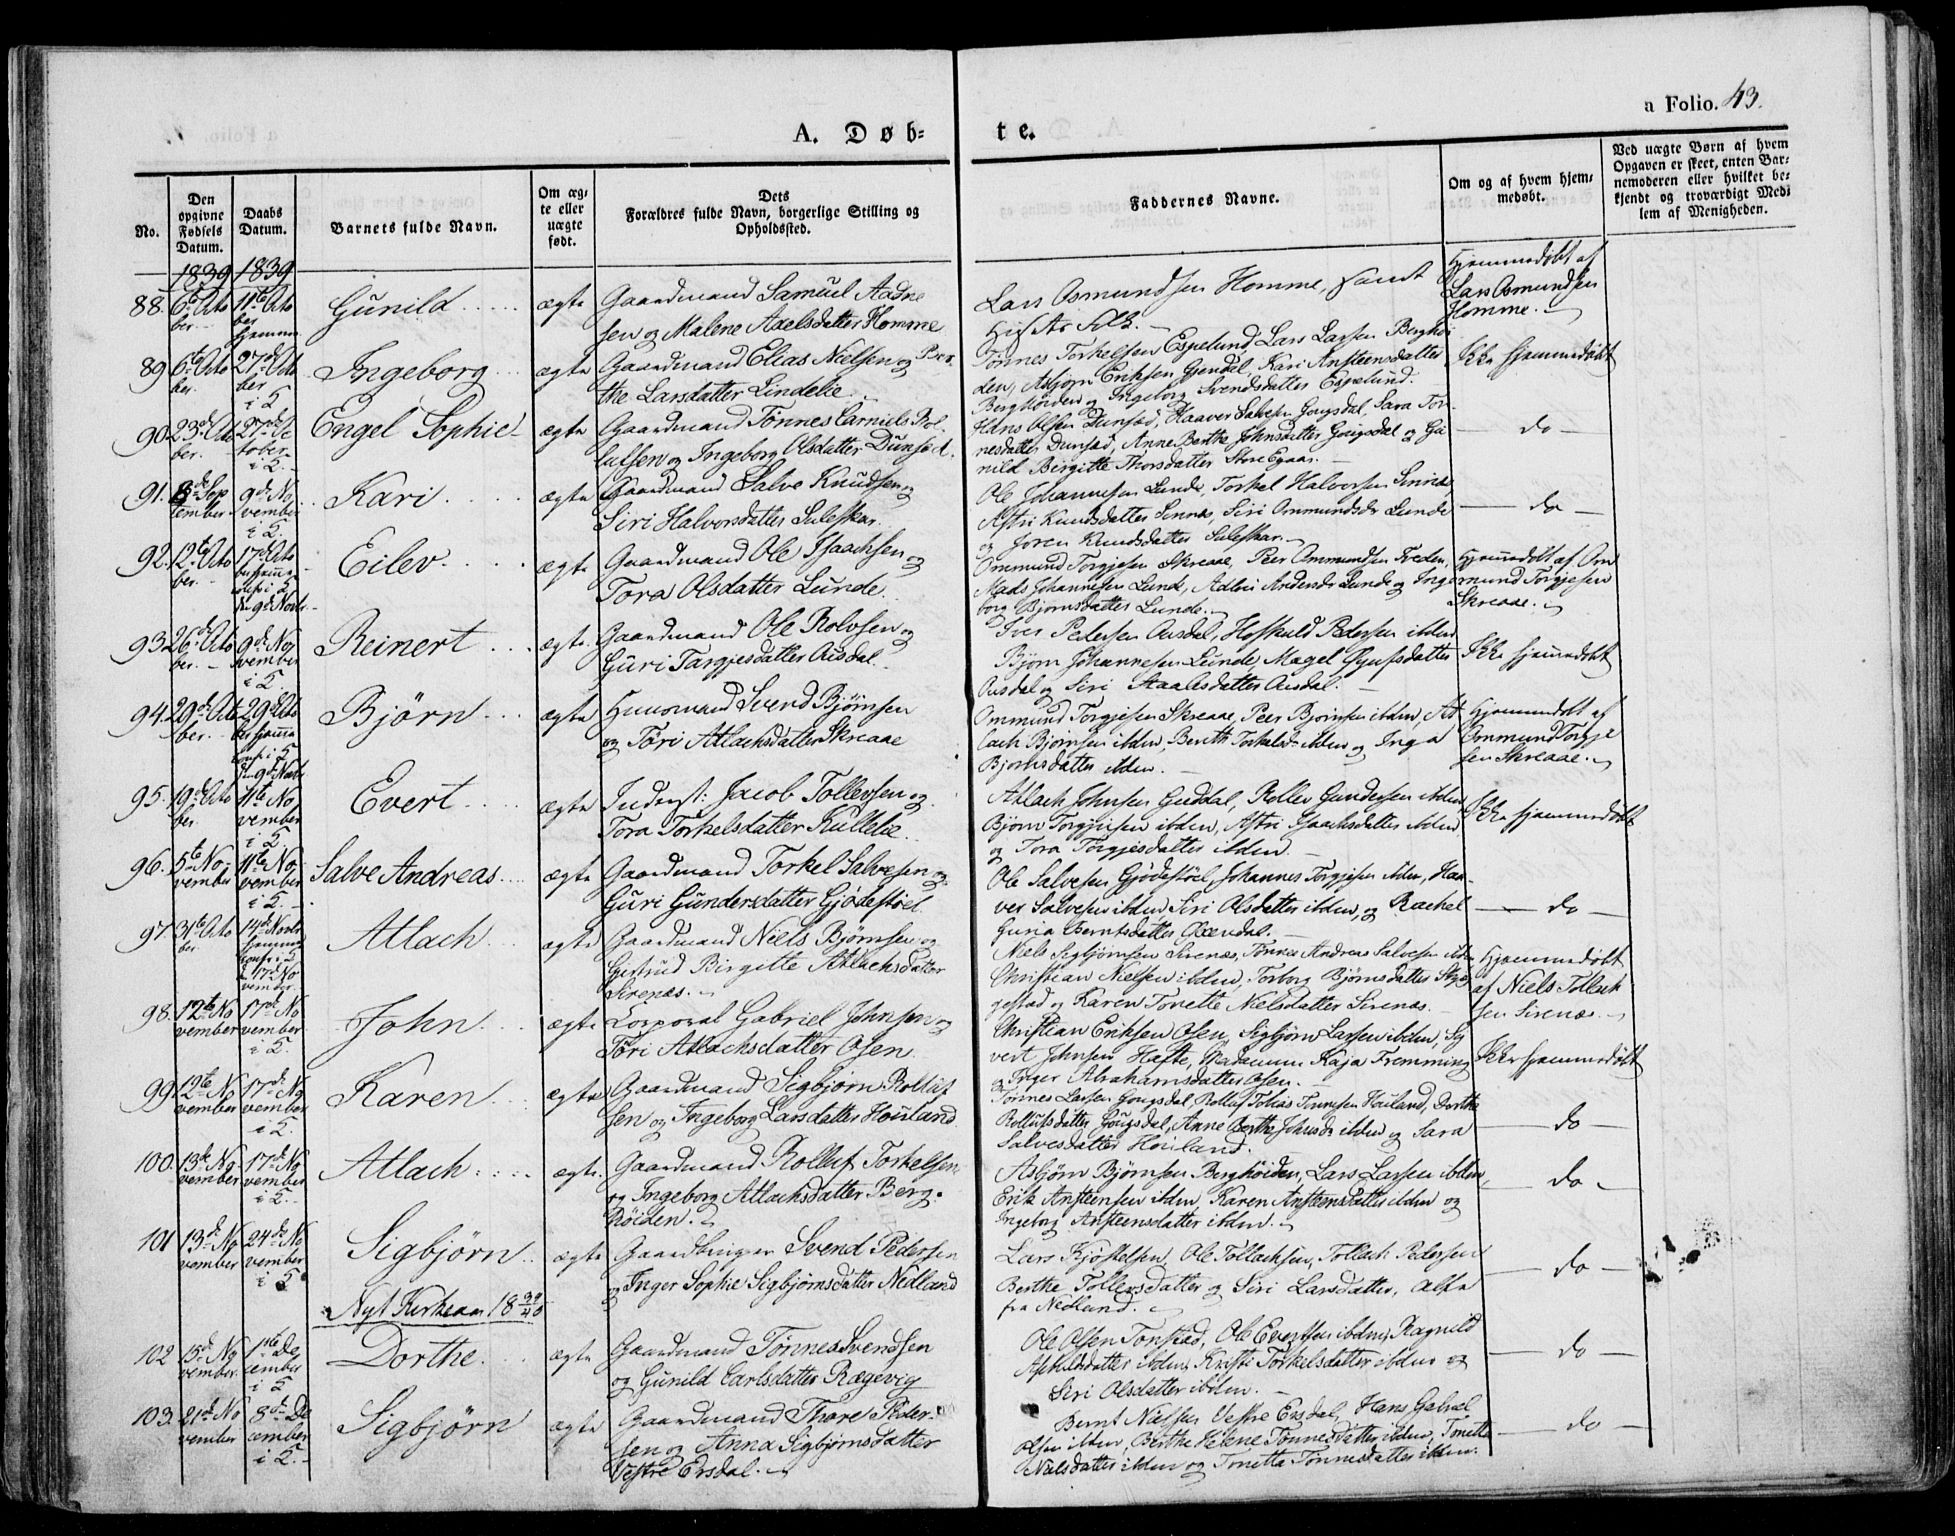 a Folio. 43.
A. Døb-
te.
No.
Den opgivne Fødsels Datum.
Daabs Datum.
Barnets fulde Navn.
Om ægte eller uægte født.
Dets Forældres fulde Navn, borgerlige Stilling og Opholdssted.
Faddernes Navne.
Om og af hvem hjemmedøbt.
Ved uægte Børn af hvem Opgaven er skeet, enten Barnemoderen eller hvilket bekjendt og troværdigt Medlem af Menigheden.
1839 1839
88. 6te Octo 11te Octo Gunild ægte Gaardmand Samuel Aadne
ber. ber hjemm.
sen og Malene Axelsdatter Homme
Lars Osmundsen Homme, samt
Hjemmedøbt af
Lars Osmundsen
Homme.
89 6te Octo 27de Octo Ingeborg ægte Gaardmand Elias Nielsen og Ber
ber. ber
i K.
the Larsdatter Lindelie
Tønnes Torkelsen Espelund, Lars Larsen Berghøi
den, Asbjørn Eriksen Gjendal, Kari Ansteensdatter
Berghøiden og Ingeborg Svendsdatter Espelund.
Ikke hjemmedøbt
90. 23de Octo 27de Oc Engel Sophie ægte Gaardmand Tønnes Cornelius Rol
ber. tober
i K.
lufsen og Ingeborg Olsdatter Dunsæd.
Hans Olsen Dunsæd, Haaver Salvesen Gougsdal, Sara Tøn
nesdatter Dunsæd, Anne Berthe Johnsdatter Gougsdal og Gu
nild Birgitte Thorsdatter Store Egaas.
do
91. 8de Sep 9de No Kari ægte Gaardmand Salve Knudsen og
tember vember
i K.
Siri Halvorsdatter Suleskar.
Ole Johannesen Lunde, Torkel Halvorsen Sinnes,
Astri Knudsdatter Sinnes, Siri Ommundsdr Lunde
og Joren Knudsdatter Suleskar.
do
92. 12te Octo 17de Octo Eilev ægte Gaardmand Ole Isaachsen og
ber. ber hjemme
den 9de Novbr.
Tora Olsdatter Lunde.
Ommund Torgjesen Skreaae, Peer Ommundsen Freden,
Mads Johannesen Lunde, Adlui Andersdr Lunde og Inge
borg Bjørnsdatter Lunde.
Hjemmedøbt af Om
mund Torgjesen
Skreaae.
93 26de Octo 9de No Reinert ægte. Gaardmand Ole Rolvsen og
ber. vember
i K.
Guri Targjesdatter Ousdal
Iver Pedersen Ousdal, Hoskuld Pedersen ibidem
Bjørn Johannesen Lunde, Magel Øyufsdatter
Ousdal og Siri Staalesdatter Ousdal.
Ikke hjemmedøbt
94. 29de Octo 29de Octo Bjørn ægte Huusmand Svend Bjørnsen
ber. ber hjemme
conf. i K.
den 9de Novbr
og Tori Atlachsdatter Skreaae
Ommund Torgjesen Skreaae, Peer Bjørnsen ibidem, At
lach Bjørnsen ibidem, Berith Torkelsdr ibidem og Inga
Bjørnsdatter ibidem.
Hjemmedøbt af
Ommund Torgje
sen Skreaae.
95. 19de Octo 11te No Evert ægte Inderst: Jacob Tollevsen og
ber. vember
i K.
Tora Torkelsdatter Kullelie
Atlach Johnsen Guddal, Rollev Gundersen ibidem,
Bjørn Torgjesen ibidem, Astri Isaachsdatter ibidem
og Tora Torgjesdatter ibidem.
Ikke hjemmedøbt
96. 5te No 11te No Salve Andreas ægte Gaardmand Torkel Salvesen og
vember vember
i K.
Guri Gundersdatter Gjødestøel
Ole Salvesen Gjødestøel, Johannes Torgjesen ibidem, Haa
ver Salvesen ibidem, Siri Olsdatter ibidem, og Rachel
Guria Berntsdatter Oxendal.
do
97. 31te Octo 14de Novbr Atlach ægte Gaardmand Niels Bjørnsen og
ber hjemme
17de No
vember
Gertrud Birgitte Atlachsdatter
Sirenæs.
Niels Sigbjørnsen Sirenæs, Tønnes Andreas Salvesen ibidem
Christian Nielsen ibidem, Torborg Bjørnsdatter Skeg
gestad og Karen Tonette Nielsdatter Sirenæs.
Hjemmedøbt
af Niels Tollach
sen Sirenæs.
98. 12te No 17de No John ægte Corporal Gabriel Johnsen og
vember vember
i K.
Tori Atlachsdatter Osen
Christian Eriksen Osen, Sigbjørn Larsen ibidem, Sy
vert Johnsen Hafte, Madamm Kaja Fremming
og Inger Abrahamsdatter Osen.
Ikke hjemmedøbt
99 12te No 17de No Karen ægte Gaardmand Sigbjørn Rolluf
vember vember
i K.
sen og Ingeborg Larsdatter Houland
Tønnes Larsen Gougsdal, Rolluf Tobias Tønnesen Houland, Dorthe
Rollufsdatter Gougsdal, Anne Berthe Johnsdr ibidem og Sara
Salvesdatter Houland.
do
100. 13de No 17de No Atlach ægte. Gaardmand Rolluf Torkelsen
vember vember
i K.
og Ingeborg Atlachsdatter Berg
høiden.
Asbjørn Bjørnsen Berghøiden, Lars Larsen ibidem,
Erik Ansteensen ibidem, Karen Ansteensdatter ibidem og
Ingeborg Ansteensdatter ibidem.
do
101 13de No 24de No Sigbjørn ægte Gaardbruger Svend Pedersen
vember vember
i K.
og Inger Sophie Sigbjørnsdatter Nedland
Lars Kjøstelsen, Ole Tollachsen, Tollach Pedersen
Berthe Tollevsdatter og Siri Larsdatter, Alle
fra Nedland.
do
Nyt Kirkeaar 1839/40
102 15de No 1te De Dorthe ægte Gaardmand Tønnes Svendsen
vember. cember
i K
og Gunild Carlsdatter Rægevig
Ole Olsen Tonstad, Ole Evertsen ibidem, Ragnild
Askildsdatter ibidem, Kristi Torkelsdatter ibidem og
Siri Olsdatter ibidem.
do
103. 21de No 8de De Sigbjørn ægte Gaardmand Thore Peder
vember cember
i K.
sen og Anna Sigbjørnsdatter
Vestre Ersdal.
Bernt Nielsen Vestre Ersdal, Hans Gabriel
Olsen ibidem, Berthe Helene Tønnesdatter ibidem, Tonette
Nielsdatter ibidem og Tonetta Tønnesdatter ibidem.
do